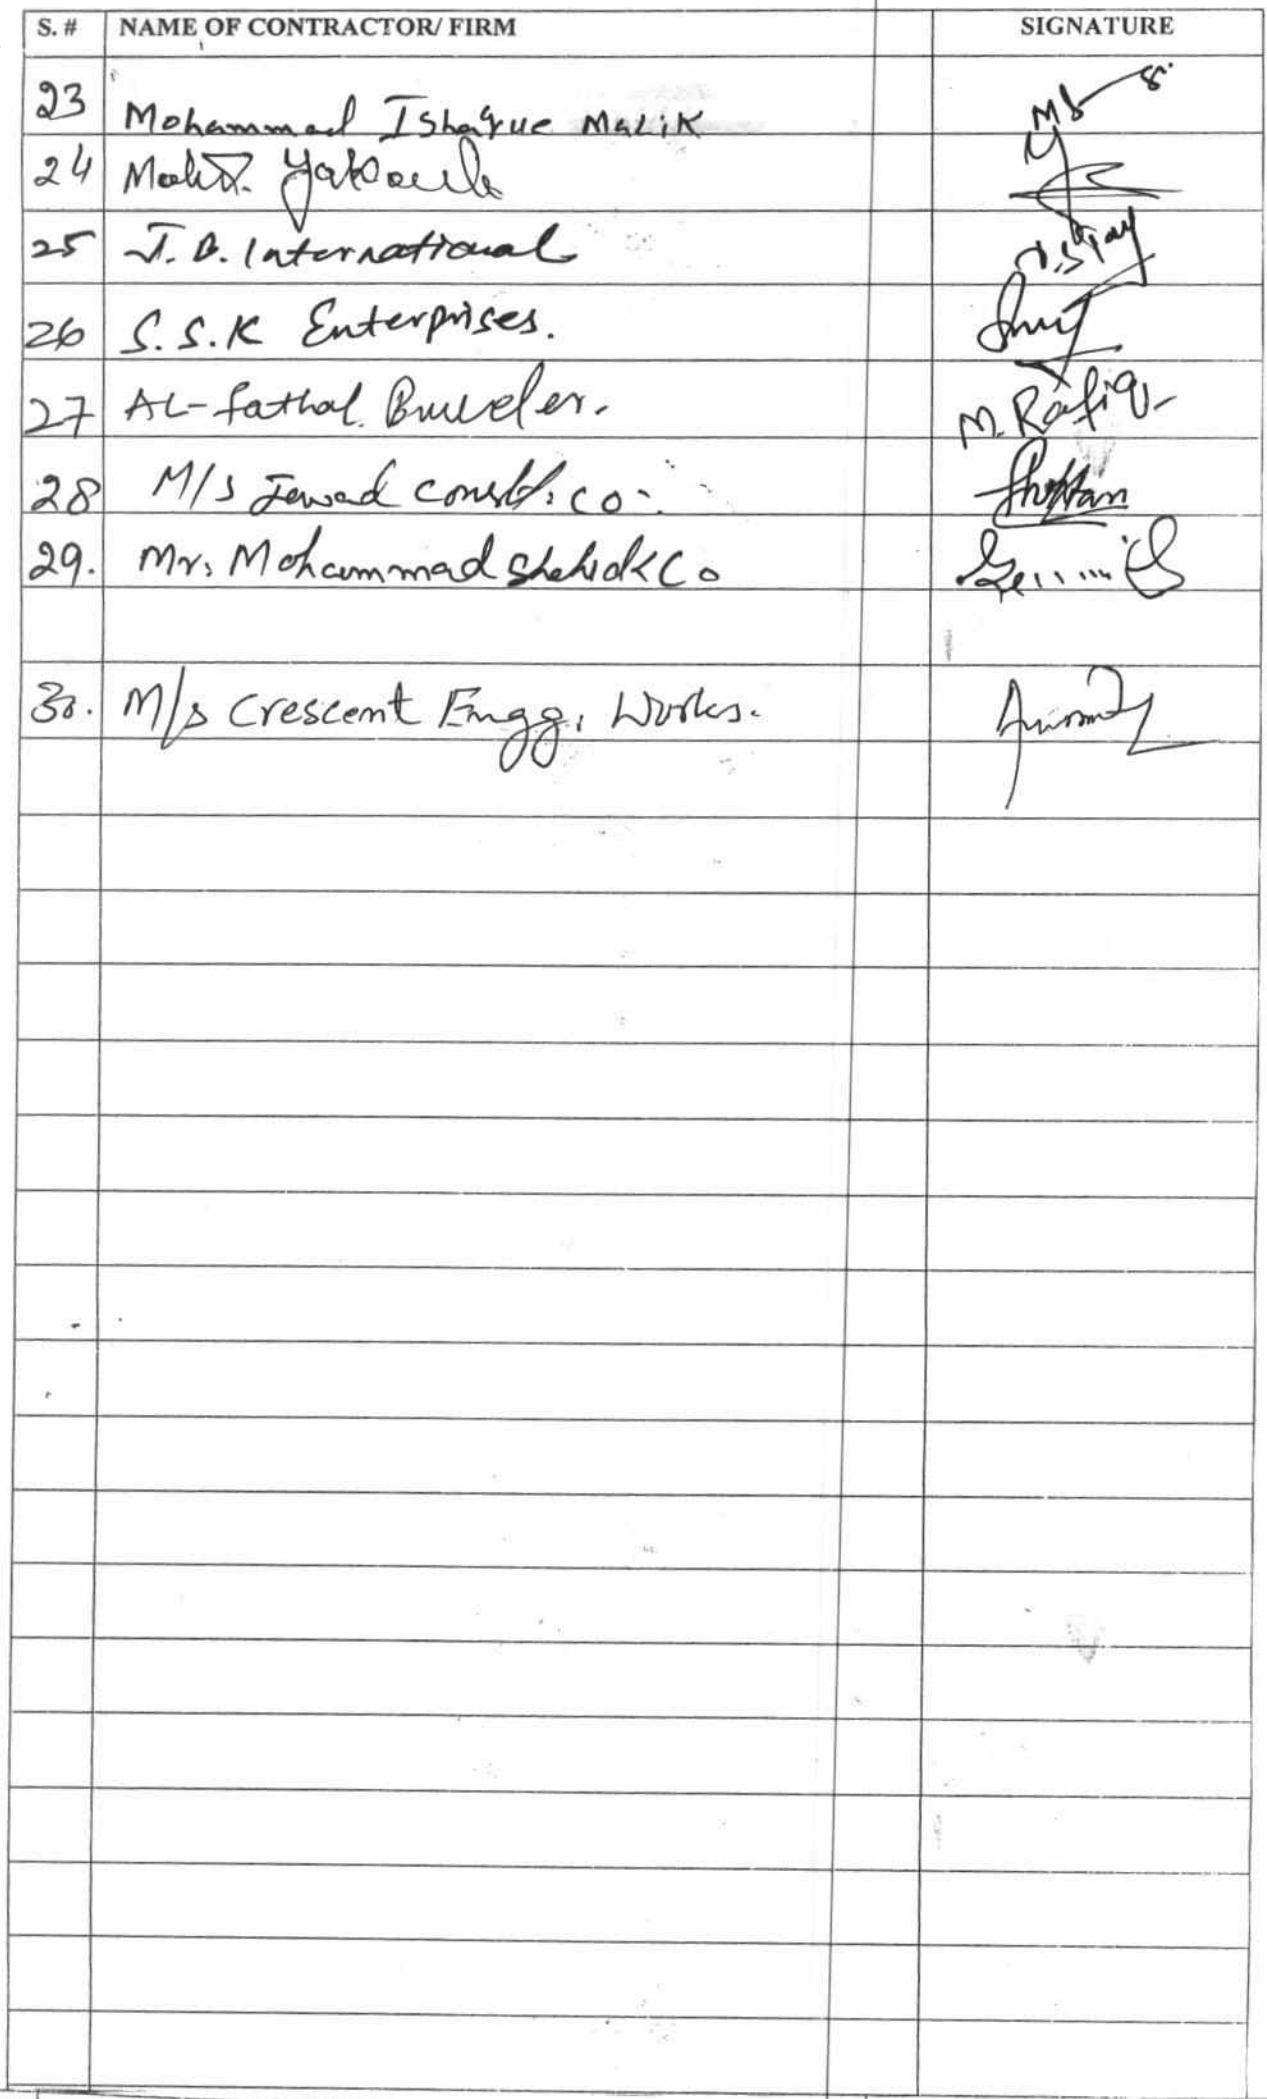 S. # NAME OF CONTRACTOR/ FIRM SIGNATURE
23 Mohammad Ishaque Malik
24 Mohd. Yakoub
25 J.B. International
26 S.S.K Enterprises.
27 AL-fathal Builder. M. Rafiq
28 M/s Jawad const. co.
29. Mr. Mohammad Shahid & Co
30. M/s Crescent Engg. Works.